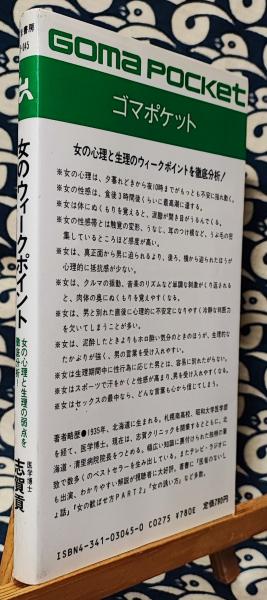 GOMA POCKET
ゴマポケット
女の心理と生理のウィークポイントを徹底分析！
※女の心理は、夕暮れどきから夜10時までがもっとも不安に揺れ動く。
※女の性感は、食後3時間後くらいに最高潮に達する。
※女は体にぬくもりを覚えると、涙腺が聞き目がうるんでくる。
※女の性感帯とは触覚の変形、うなじ、耳のつけ根など、うぶ毛の密
集しているところほど感度が高い。
※女は、真正面から男に迫られるより、後ろ、横から迫られたほうが
心理的に抵抗感が少ない。
※女は、クルマの振動、音楽のリズムなど単調な刺激がくり返される
と、肉体の長にぬくもりを覚えやすくなる。
※女は、男と別れた直後に心理的に不安定になりやすく冷静な判断力
を欠いてしまうことが多い。
※女は、泥酔したときよりもホロ酔い気分のときのほうが、生理的な
たかぶりが強く、男の言葉を受け入れやすい。
※女は生理期間中に性行為に応じた男とは、容易に別れたがらない。
※女はスポーツで汗をかくと性感が高まり、男を受け入れやすくなる。
※女はセックスの最中なら、どんな言葉も心から信じてしまう。
著者略歴●1935年、北海道に生まれる。札幌南高校、昭和大学医学部
を経て、医学博士。現在は、志賀クリニックを開業するとともに、北
海道・清里病院院長をつとめる。幅広い知識に裏付けられた独特の筆
致で数多くのベストセラーを生み出している。またテレビ・ラジオに
も出演、わかりやすい解説が視聴者に大好評。著書に「医者のないし
ょ話」「女の歓ばせ方PART2」「女の誘い方」など多数。
ISBN4-341-03045-0 C0275 ¥780E 定価780円
女のウィークポイント
女の心理と生理の弱点を
徹底分析！
医学博士
志賀貢